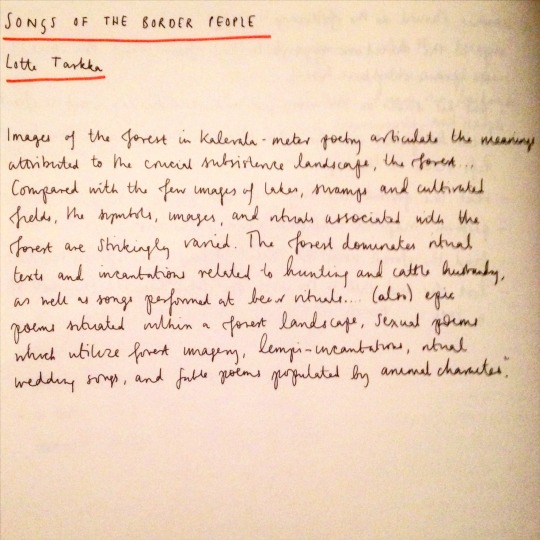 SONGS OF THE BORDER PEOPLE
Lotte Tarkka
Images of the forest in Kalevala-meter poetry articulate the meanings
attributed to the crucial subsistence landscape, the forest...
Compared with the few images of lakes, swamps and cultivated
fields, the symbols, images, and rituals associated with the
forest are strikingly varied. The forest dominates ritual
texts and incantations related to hunting and cattle husbandry,
as well as songs performed at bear rituals.... (also) epic
poems situated within a forest landscape, sexual poems
which utilize forest imagery, lempi-incantations, ritual
wedding songs, and fable poems populated by animal characters."